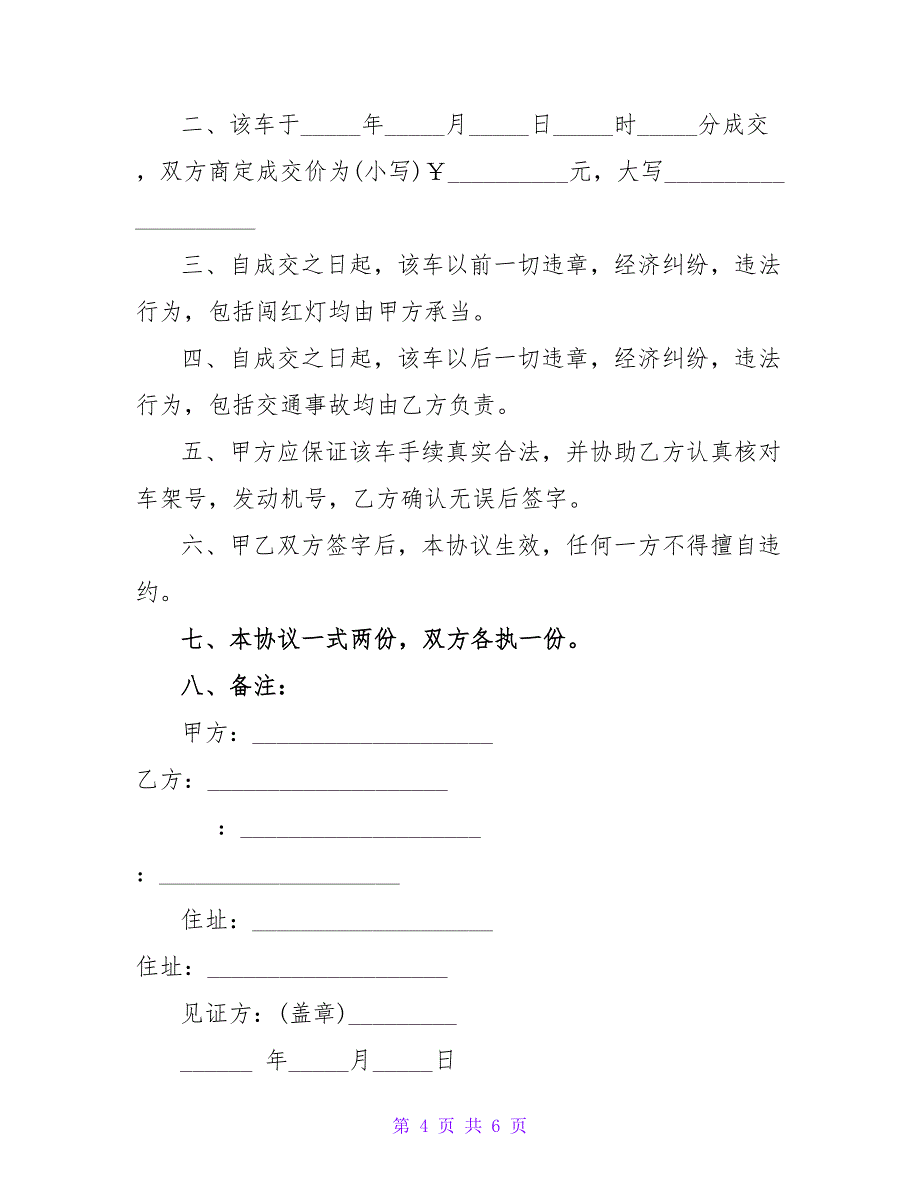 二、该车于_____年_____月_____日_____时_____分成交
，双方商定成交价为(小写)￥__________元，大写__________
__________
三、自成交之日起，该车以前一切违章，经济纠纷，违法
行为，包括闯红灯均由甲方承当。
四、自成交之日起，该车以后一切违章，经济纠纷，违法
行为，包括交通事故均由乙方负责。
五、甲方应保证该车手续真实合法，并协助乙方认真核对
车架号，发动机号，乙方确认无误后签字。
六、甲乙双方签字后，本协议生效，任何一方不得擅自违
约。
七、本协议一式两份，双方各执一份。
八、备注：
甲方：____________________
乙方：____________________
：____________________
：____________________
住址：____________________
住址：____________________
见证方：(盖章)_________
______ 年_____月_____日
第 4 页 共 6 页